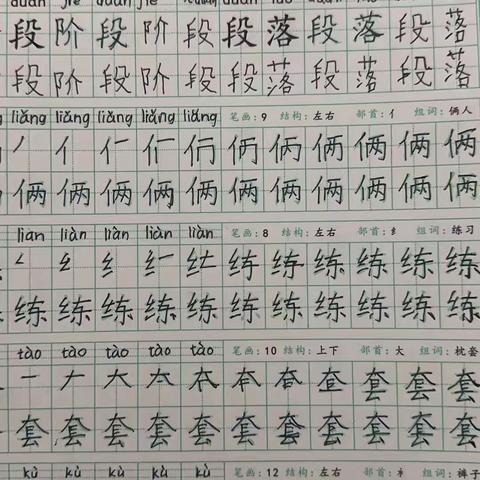 段 阶 段 阶 段 段 落 段 落 段 落
段 阶 段 阶 段 段 落 段 落 段 落
liǎng liǎng liǎng liǎng 笔画: 9 结构: 左右 部首: 亻 组词: 俩人
丿 亻 俩 俩 俩
俩 俩 俩 俩 俩 俩 俩 俩 俩 俩 俩
liàn liàn liàn liàn liàn 笔画: 8 结构: 左右 部首: 纟 组词: 练习
纟 练 练 练 练
练 练 练 练 练 练 练 练 练 练 练
tào tào tào tào tào 笔画: 10 结构: 上下 部首: 大 组词: 枕套
一 ナ 大 套 套 套
套 套 套 套 套 套 套 套 套 套 套
kù kù kù kù kù 笔画: 12 结构: 左右 部首: 衤 组词: 裤子